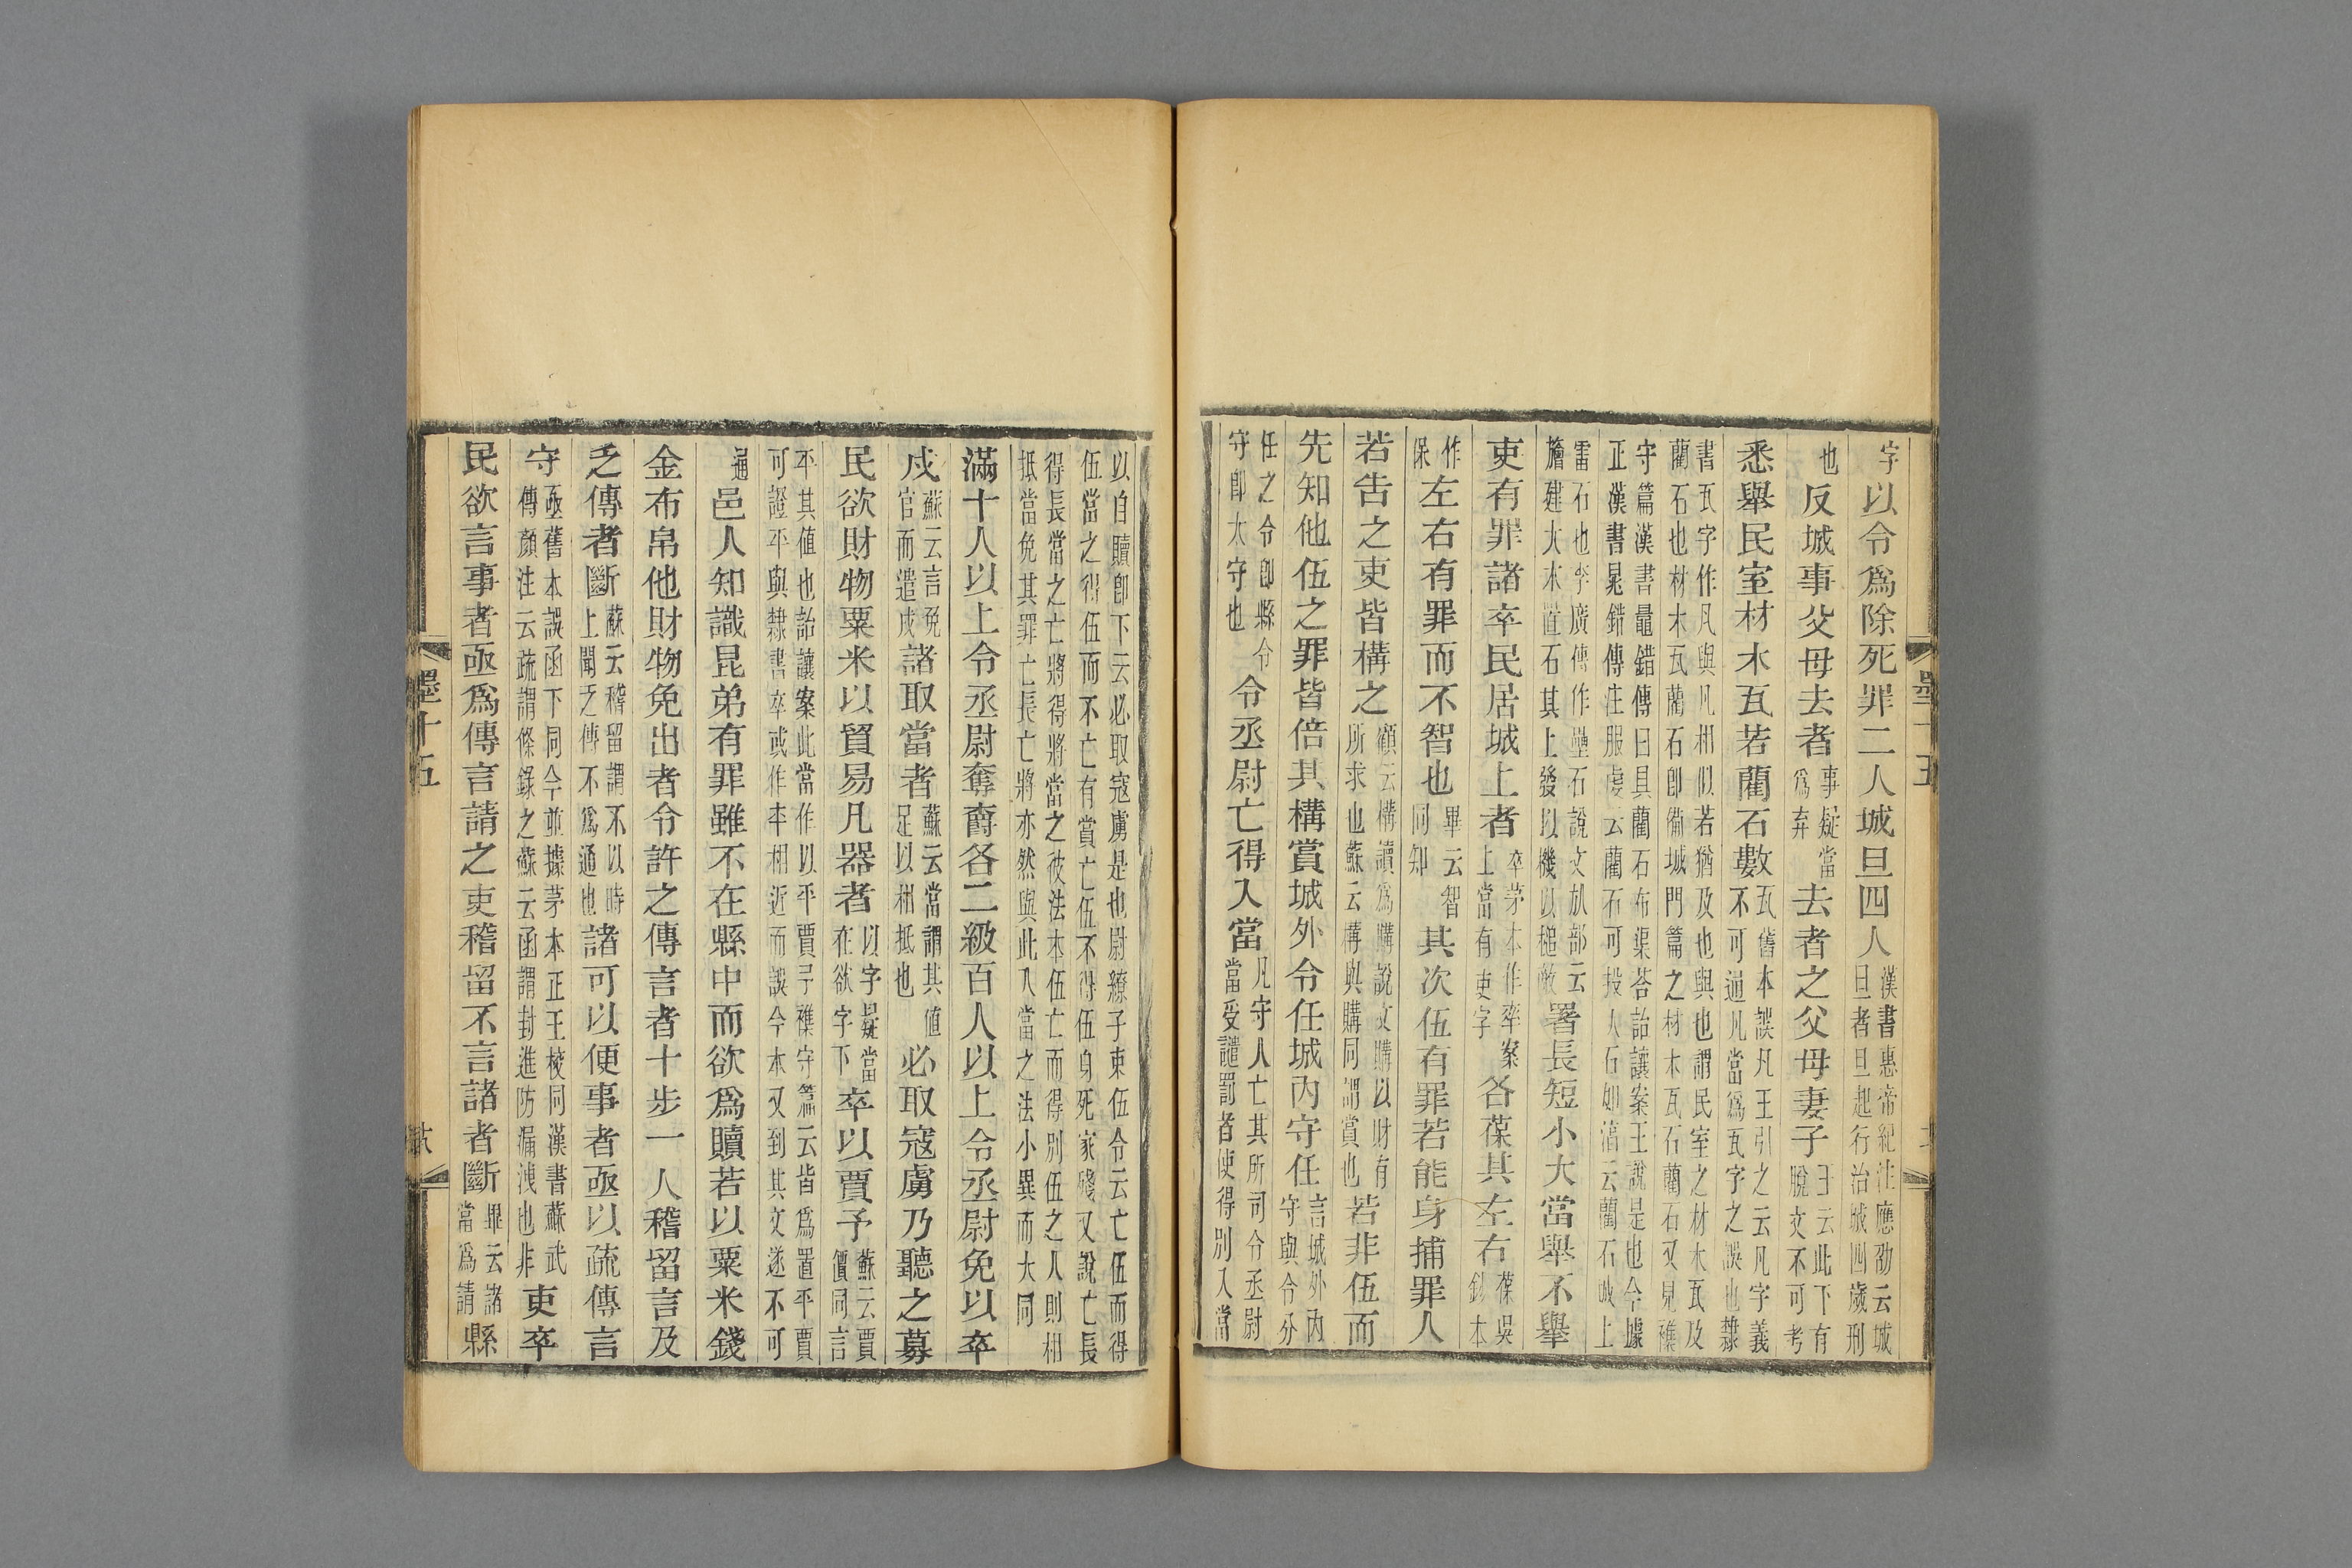 字以令爲除死罪二人城旦四人漢書惠帝紀注應劭云城旦者旦起行治城四歲刑
也反城事父母去者事疑當爲弃去者之父母妻子王云此下有脫文不可考
悉舉民室材木瓦若藺石數瓦舊本誤凡王引之云凡字義不可通凡當爲瓦字之誤也隸
書瓦字作凡與凡相似若猶及也與也謂民室之材木瓦及藺石也材木瓦藺石卽備城門篇之材木瓦石藺石又見襍
守篇漢書鼂錯傳曰具藺石布渠荅詒讓案王說是也今據正漢書晁錯傳注服虔云藺石可投人石如淳云藺石城上
雷石也李廣傳作壘石說文㫃部云旝建大木置石其上發以機以槌敵署長短小大當舉不舉
吏有罪諸卒民居城上者卒茅本作率案上當有吏字各葆其左右葆吳鈔本
作保左右有罪而不智也畢云智同知其次伍有罪若能身捕罪人
若告之吏皆構之顧云構讀爲購說文購以財有所求也蘇云構與購同謂賞也若非伍而
先知他伍之罪皆倍其構賞城外令任城內守任言城外內守與令分
任之令卽縣令守卽太守也令丞尉亡得入當凡守人亡其所司令丞尉當受譴罰者使得別入當
以自贖卽下云必取寇虜是也尉繚子束伍令云亡伍而得伍當之得伍而不亡有賞亡伍不得伍身死家殘又說亡長
得長當之亡將得將當之彼法本伍亡而得別伍之人則相抵當免其罪亡長亡將亦然與此入當之法小異而大同
滿十人以上令丞尉奪爵各二級百人以上令丞尉免以卒
戍蘇云言免官而遣戍諸取當者蘇云當謂其值足以相抵也必取寇虜乃聽之募
民欲財物粟米以貿易凡器者以字疑當在欲字下卒以賈予蘇云賈價同言
平其值也詒讓案此當作以平賈予襍守篇云皆爲置平賈可證平與隸書卒或作𠦂相近而誤今本又到其文遂不可
通邑人知識昆弟有罪雖不在縣中而欲爲贖若以粟米錢
金布帛他財物免出者令許之傳言者十步一人稽留言及
乏傳者斷蘇云稽留謂不以時上聞乏傳不爲通也諸可以便事者亟以疏傳言
守亟舊本誤函下同今並據茅本正王校同漢書蘇武傳顏注云疏謂條錄之蘇云函謂封進防漏洩也非吏卒
民欲言事者亟爲傳言請之吏稽留不言諸者斷畢云諸當爲請縣
墨十五
墨十五